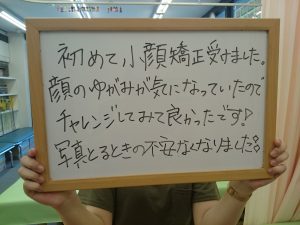 初めて小顔矯正受けました。
顔のゆがみが気になっていたので
チャレンジしてみて良かったです!
写真とるときの不安なくなりました!